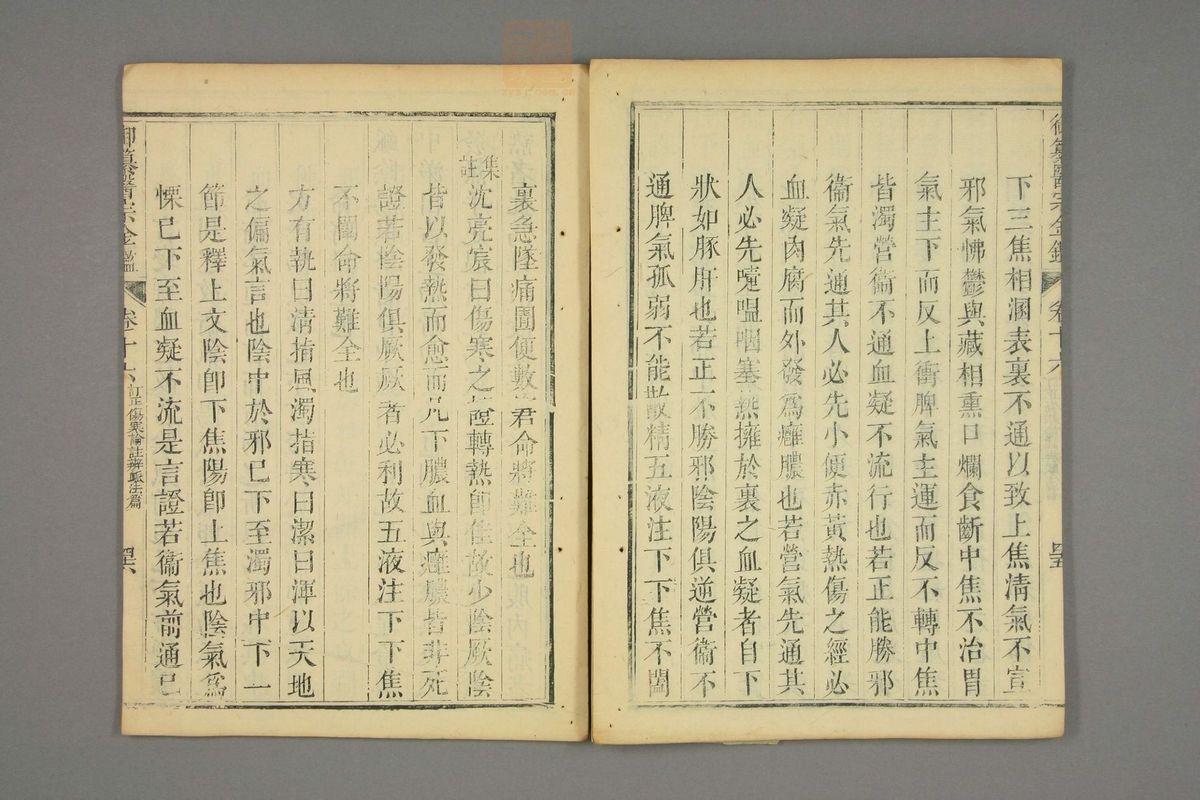 御纂醫宗金鑑 卷十六 四五
下三焦相溷表裏不通以致上焦清氣不宣
邪氣怫鬱與藏相熏口爛食齗中焦不治胃
氣主下而反上衝脾氣主運而反不轉中焦
皆濁營衞不通血凝不流行也若正能勝邪
衞氣先通其人必先小便赤黃熱傷之經必
血凝肉腐而外發爲癰膿也若營氣先通其
人必先嚏嗢咽塞熱擁於裏之血凝者自下
狀如豚肝也若正不勝邪陰陽俱逆營衞不
通脾氣孤弱不能散精五液注下下焦不闔
裏急墜痛圊便數君命將難全也
集註沈亮宸曰傷寒之證轉熱即佳故少陰厥陰
皆以發熱而愈而凡下膿血與癰膿皆非死
證若陰陽俱厥厥者必利故五液注下下焦
不闔命將難全也
方有執曰清指風濁指寒曰潔曰渾以天地
之偏氣言也陰中於邪已下至濁邪中下一
節是釋上文陰即下焦陽即上焦也陰氣爲
慄已下至血凝不流是言證若衞氣前通已
御纂醫宗金鑑 卷十六 訂正傷寒論註辨脈法篇 四六